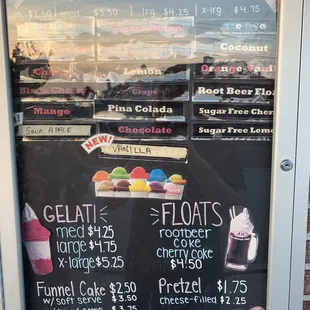 $1.50 med $3.50 lrg $4.25 x-lrg $4.75
Coconut
Cherry Lemon Orange Vani
Black Cherry Grape Root Beer Floa
Mango Pina Colada Sugar Free Cher
Sour Apple Chocolate Sugar Free Lemo
NEW! VANILLA
GELATI
med $4.25
large $4.75
x-large $5.25
FLOATS
rootbeer
coke
cherry coke
$4.50
Funnel Cake $2.50
w/soft serve $3.50
$3.75
Pretzel $1.75
cheese-filled $2.25